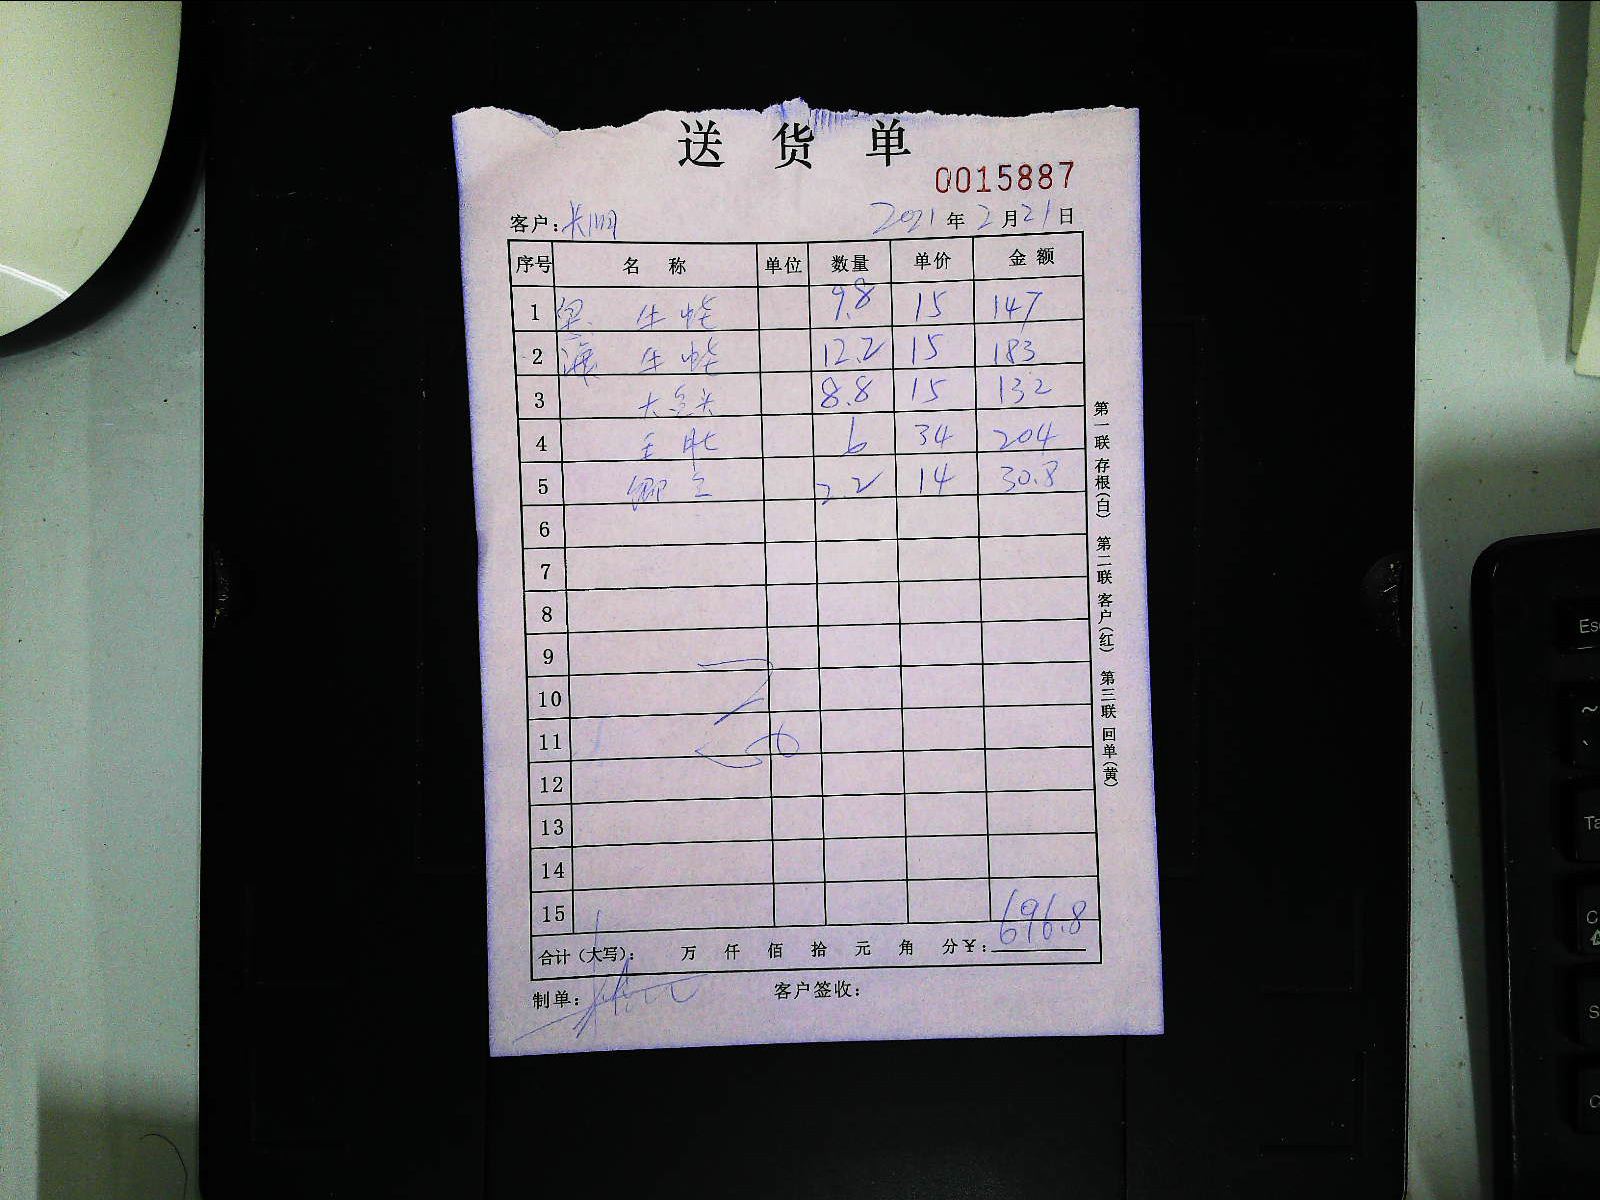 送 货 单
0015887
客户: 2021 年 2 月 21 日
序号 名 称 单位 数量 单价 金额
1 生蚝 9.8 15 147
2 生蚝 12.2 15 183
3 大鱼头 8.8 15 132
4 34 204
5 2.2 14 30.8
6
7
8
9
10
11
12
13
14
15
696.8
合计(大写): 万 仟 佰 拾 元 角 分¥:
制单: 客户签收:
第一联 存根(白) 第二联 客户(红) 第三联 回单(黄)
Esc
~
`
Ta